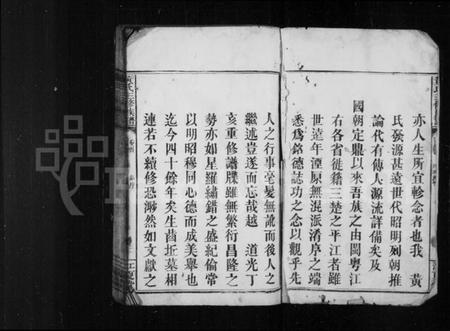 亦人生所宜軫念者也我 黃
氏發源甚遠世代昭明列朝推
論代有傳人源流詳備矣及
國朝定鼎以來吾族之由閩粵江
右各省徙籍三楚之平江者雖
世遠年湮原無混派淆序之端
悉爲銘德誌功之念以觀乎先
人之行事毫髮無訛而後人之
繼述豈遂而忘哉越 道光丁
亥重修譜牒雖無繁衍昌隆之
勢亦如星羅繡錯之盛紀倫常
以明昭穆同心德而成美舉也
迄今四十餘年矣生齒坵墓相
連若不續修恐渺然如文獻之